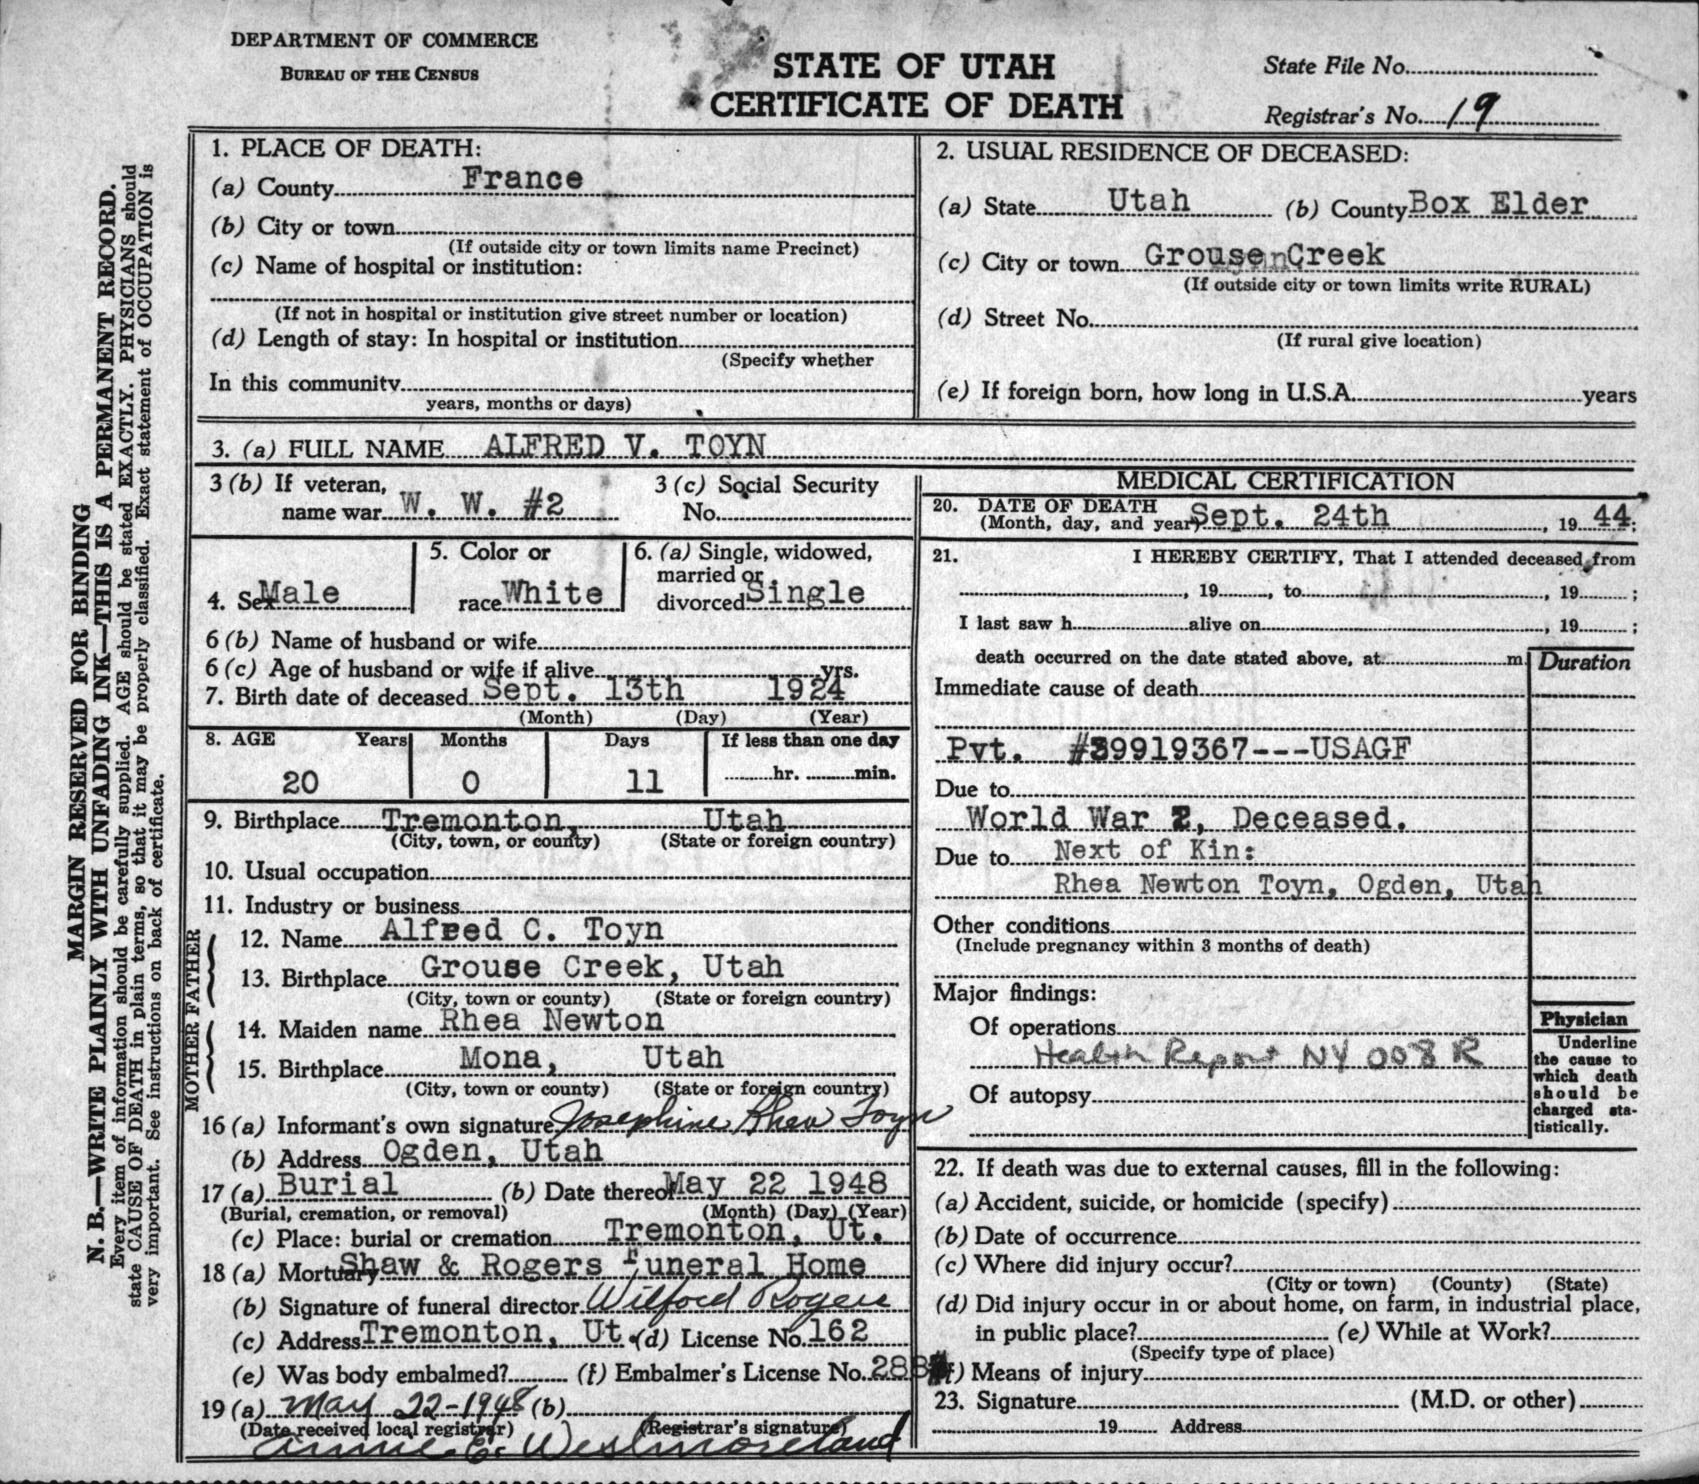 DEPARTMENT OF COMMERCE
BUREAU OF THE CENSUS
STATE OF UTAH
CERTIFICATE OF DEATH
State File No.
Registrar's No. 19
MARGIN RESERVED FOR BINDING
N. B.—WRITE PLAINLY WITH UNFADING INK—THIS IS A PERMANENT RECORD.
Every item of information should be carefully supplied. AGE should be stated EXACTLY. PHYSICIANS should
state CAUSE OF DEATH in plain terms, so that it may be properly classified. Exact statement of OCCUPATION is
very important. See instructions on back of certificate.
1. PLACE OF DEATH:
(a) County France
(b) City or town
(If outside city or town limits name Precinct)
(c) Name of hospital or institution:
(If not in hospital or institution give street number or location)
(d) Length of stay: In hospital or institution
(Specify whether
In this community
years, months or days)
2. USUAL RESIDENCE OF DECEASED:
(a) State Utah (b) County Box Elder
(c) City or town Grouse Creek
(If outside city or town limits write RURAL)
(d) Street No.
(If rural give location)
(e) If foreign born, how long in U.S.A. years
3. (a) FULL NAME ALFRED V. TOYN
3 (b) If veteran,
name war W. W. #2
3 (c) Social Security
No.
4. Sex Male
5. Color or
race White
6. (a) Single, widowed,
married or
divorced Single
6 (b) Name of husband or wife
6 (c) Age of husband or wife if alive yrs.
7. Birth date of deceased Sept. 13th 1924
(Month) (Day) (Year)
8. AGE Years Months Days If less than one day
20 0 11 hr. min.
9. Birthplace Tremonton, Utah
(City, town, or county) (State or foreign country)
10. Usual occupation
11. Industry or business
FATHER
12. Name Alfred C. Toyn
13. Birthplace Grouse Creek, Utah
(City, town or county) (State or foreign country)
MOTHER
14. Maiden name Rhea Newton
15. Birthplace Mona, Utah
(City, town or county) (State or foreign country)
16 (a) Informant's own signature Josephine Rhea Toyn
(b) Address Ogden, Utah
17 (a) Burial (b) Date thereof May 22 1948
(Burial, cremation, or removal) (Month) (Day) (Year)
(c) Place: burial or cremation Tremonton, Ut.
18 (a) Mortuary Shaw & Rogers Funeral Home
(b) Signature of funeral director Wilford Rogers
(c) Address Tremonton, Ut. (d) License No. 162
(e) Was body embalmed? (f) Embalmer's License No. 288
19 (a) May 22-1948 (b)
(Date received local registrar) (Registrar's signature)
Annie E. Westmoreland
MEDICAL CERTIFICATION
20. DATE OF DEATH
(Month, day, and year) Sept. 24th, 19 44;
21. I HEREBY CERTIFY, That I attended deceased from
, 19 , to , 19 ;
I last saw h alive on , 19 ;
death occurred on the date stated above, at m.
Duration
Immediate cause of death
Pvt. #39919367---USAGF
Due to
World War 2, Deceased.
Due to Next of Kin:
Rhea Newton Toyn, Ogden, Utah
Other conditions
(Include pregnancy within 3 months of death)
Major findings:
Of operations
Health Report NY 008 R
Of autopsy
Physician
Underline
the cause to
which death
should be
charged sta-
tistically.
22. If death was due to external causes, fill in the following:
(a) Accident, suicide, or homicide (specify)
(b) Date of occurrence
(c) Where did injury occur?
(City or town) (County) (State)
(d) Did injury occur in or about home, on farm, in industrial place,
in public place? (e) While at Work?
(Specify type of place)
(f) Means of injury
23. Signature (M.D. or other)
19 Address